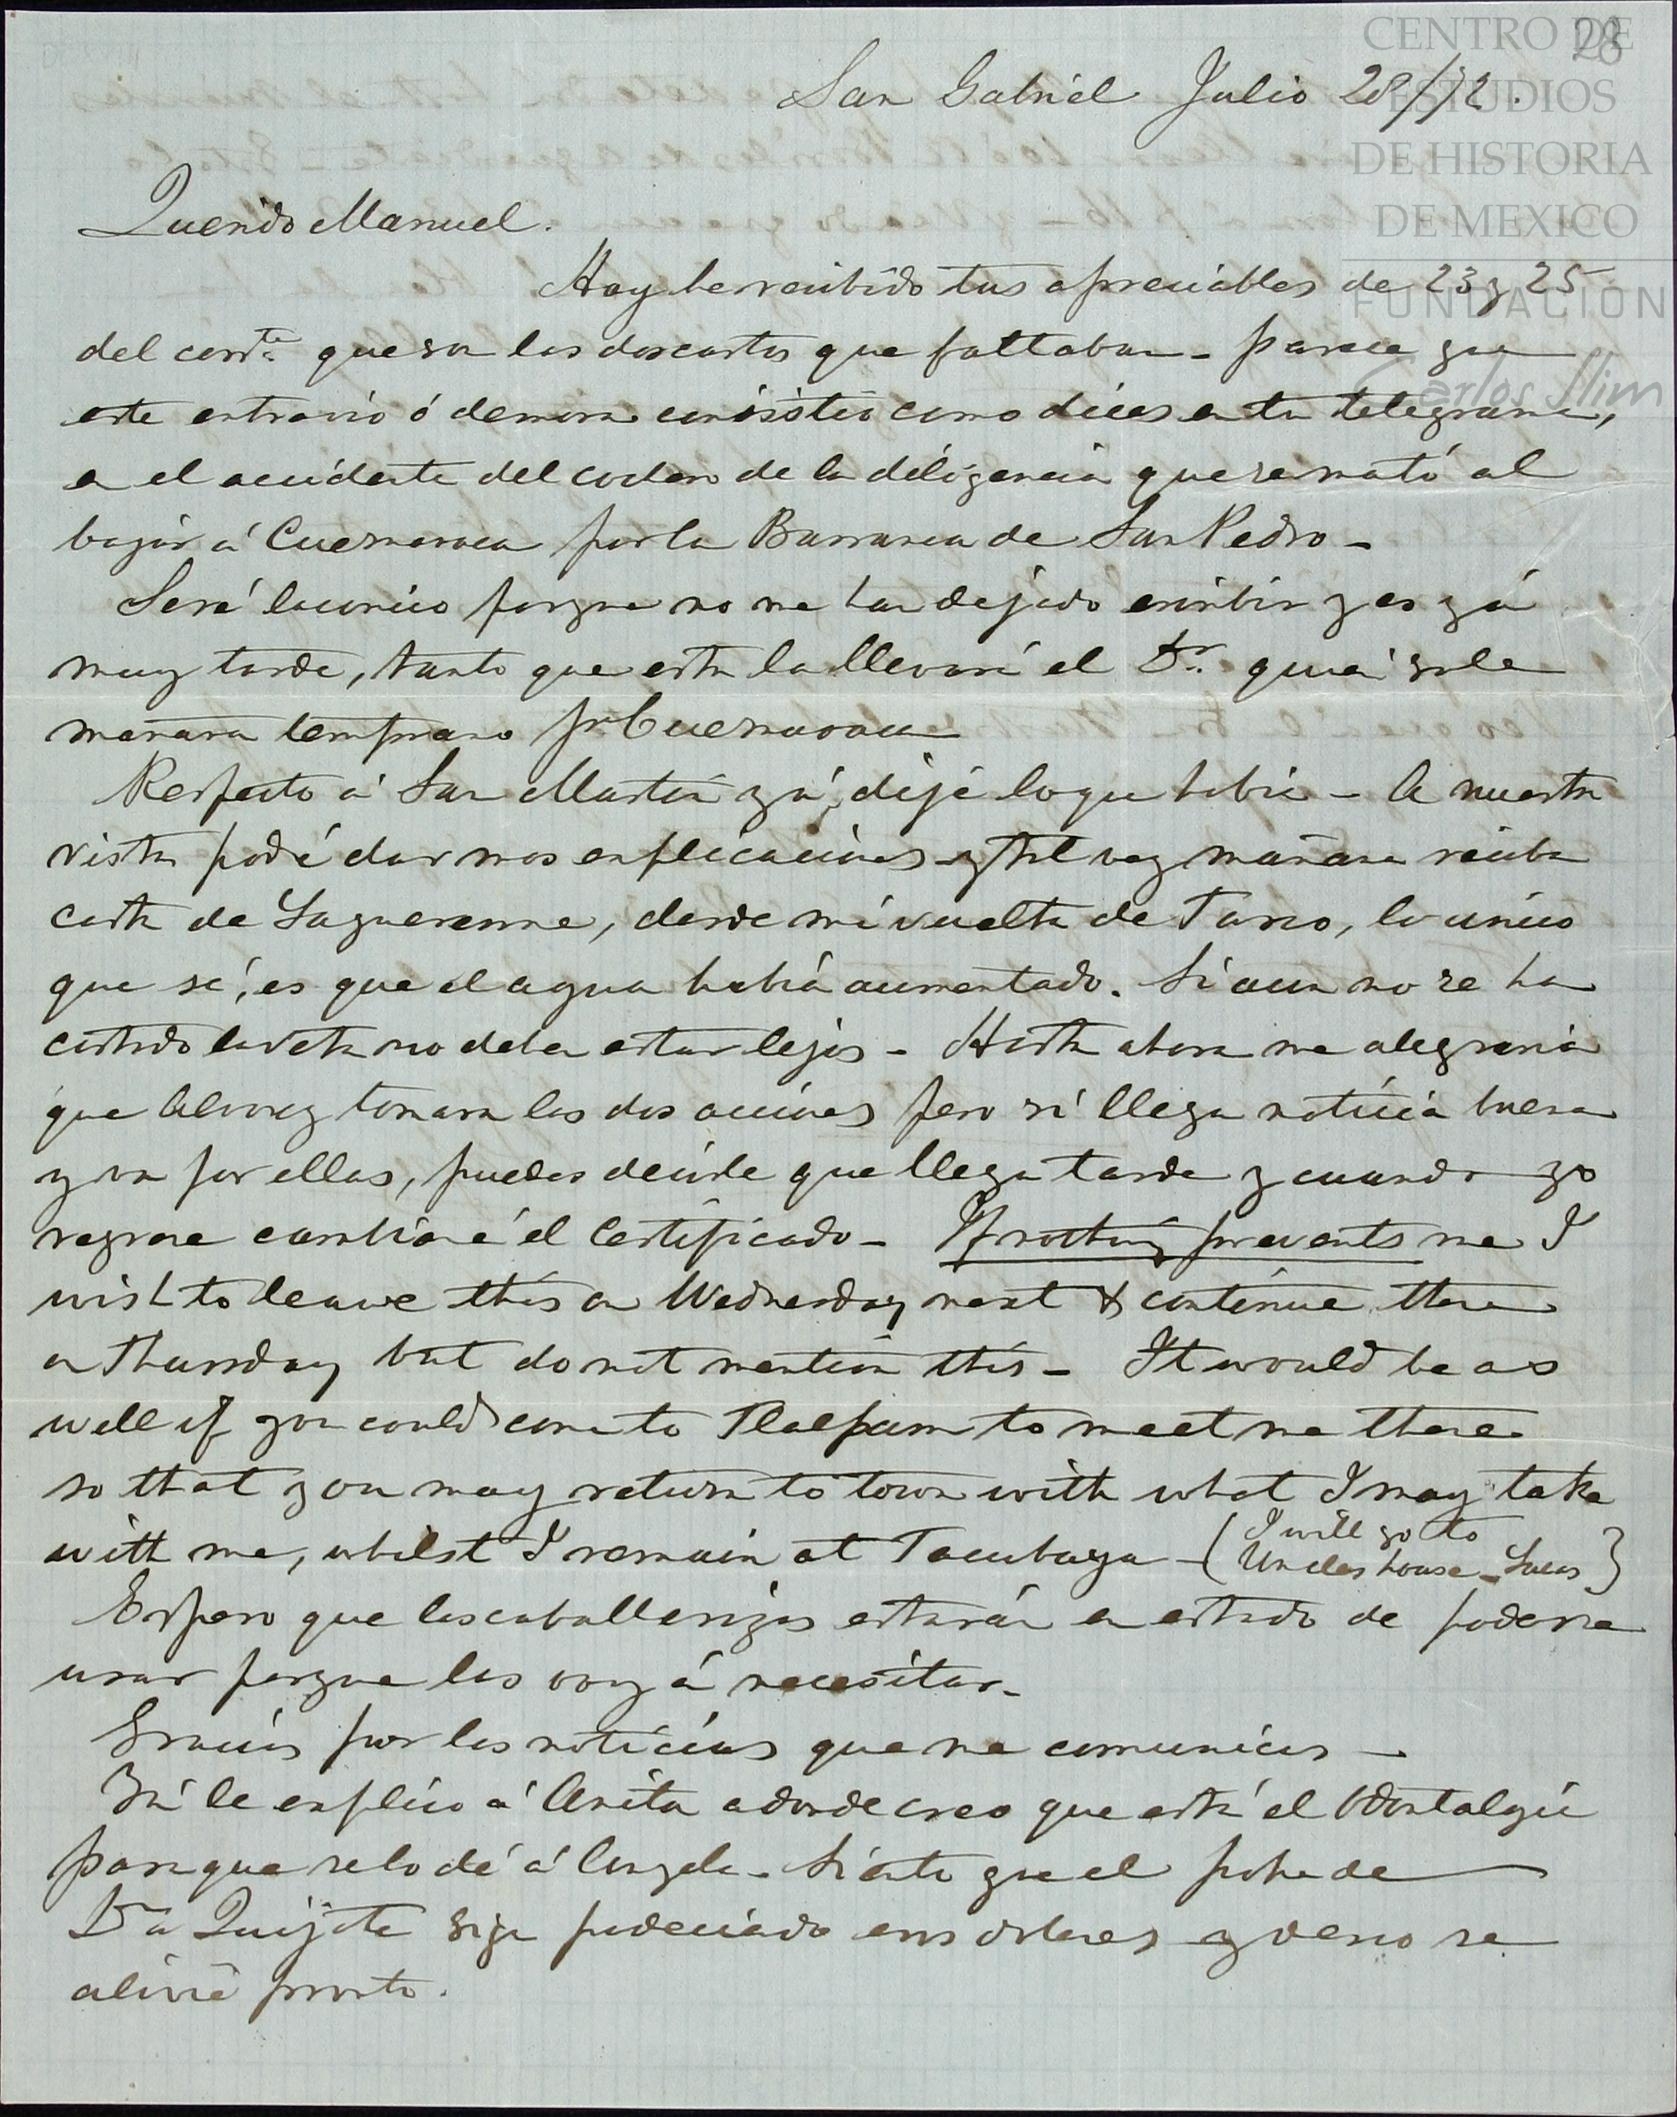 28
CENTRO DE
ESTUDIOS
DE HISTORIA
DE MEXICO
FUNDACIÓN
Carlos Slim
San Gabriel Julio 28/72.
Querido Manuel.
Hoy he recibido tus apreciables de 23 y 25
del corrte. que son las dos cartas que faltaban - parece que
este extravio ó demora consistió como dices en tu telegrama,
en el accidente del cochero de la diligencia que se mató al
bajar á Cuernavaca por la Barranca de San Pedro -
Seré laconico porque no me han dejado escribir y es yá
muy tarde, tanto que esta la llevará el Dr. quien sale
mañana temprano pr Cuernavaca
Respecto á San Martin yá dije lo que habia - A nuestra
vista podré dar mas explicaciones y tal vez mañana reciba
carta de Laguerenne, desde mi vuelta de Tasco, lo unico
que sé, es que el agua habia aumentado. Si aun no se ha
cortado la veta no debe estar lejos - Hasta ahora me alegraria
que Alvarez tomara las dos acciones pero si llega noticia buena
y va por ellas, puedes decirle que llega tarde y cuando yo
regrese cambiaré el Certificado - If nothing prevents me I
wish to leave this on Wednesday next & continue there
on Thursday but do not mention this - It would be as
well if you could come to Tlalpam to meet me there
so that you may return to town with what I may take
with me, whilst I remain at Tacubaya - (I will go to
Uncles house - Lucas)
Espero que las caballerizas estarán en estado de poderse
usar porque las voy á necesitar -
Gracias por las noticias que me comunicas -
Yá le explico á Anita adonde creo que está el Odontalgic
para que se lo dé á Angela - Siento que el pobre de
Dn Quijote siga padeciendo sus dolores y deseo se
alivie pronto.